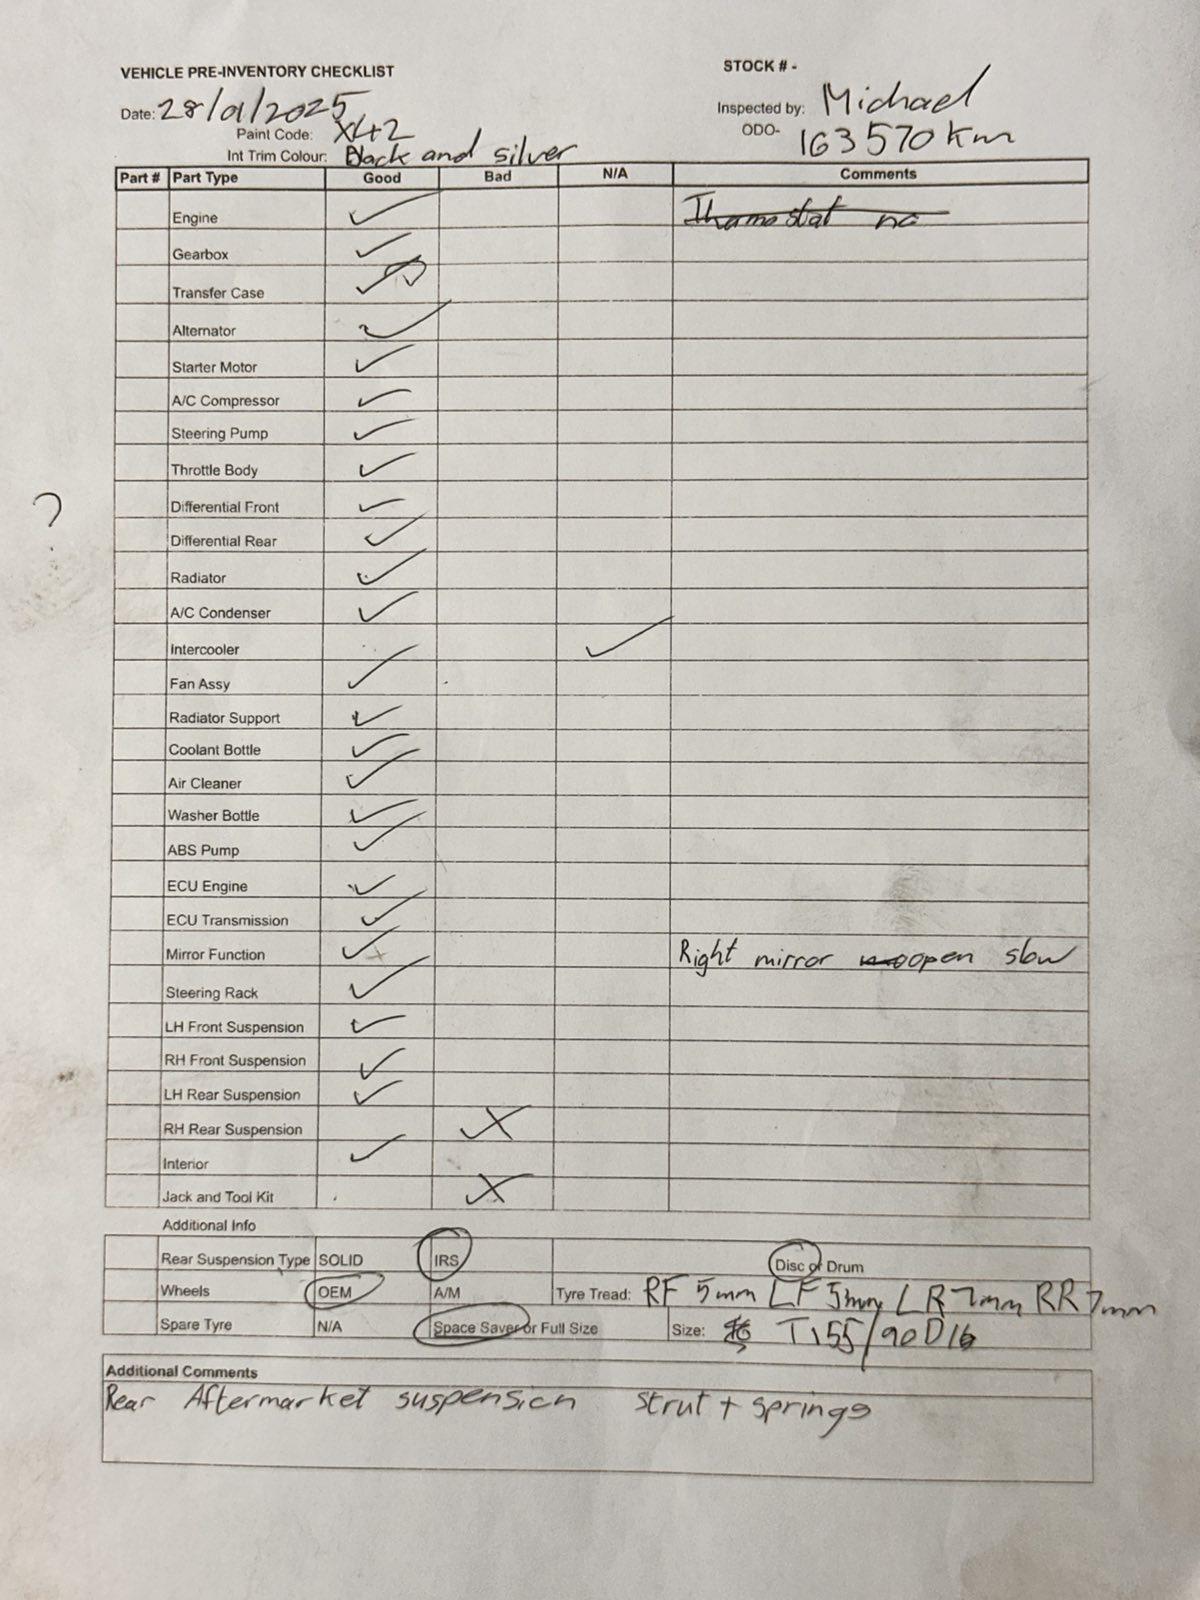 VEHICLE PRE-INVENTORY CHECKLIST
STOCK # -
Date: 28/01/2025
Inspected by: Michael
Paint Code: X42
ODO- 163570 Km
Int Trim Colour: Black and silver
Part # Part Type Good Bad N/A Comments
Engine ✓ Thamostat no
Gearbox ✓
Transfer Case ✓
Alternator ✓
Starter Motor ✓
A/C Compressor ✓
Steering Pump ✓
Throttle Body ✓
?
Differential Front ✓
Differential Rear ✓
Radiator ✓
A/C Condenser ✓
Intercooler ✓
Fan Assy ✓
Radiator Support ✓
Coolant Bottle ✓
Air Cleaner ✓
Washer Bottle ✓
ABS Pump ✓
ECU Engine ✓
ECU Transmission ✓
Mirror Function ✓ Right mirror open slow
Steering Rack ✓
LH Front Suspension ✓
RH Front Suspension ✓
LH Rear Suspension ✓
RH Rear Suspension X
Interior ✓
Jack and Tool Kit X
Additional Info
Rear Suspension Type SOLID IRS Disc or Drum
Wheels OEM A/M Tyre Tread: RF 5mm LF 5mm LR 7mm RR 7mm
Spare Tyre N/A Space Saver or Full Size Size: T155/90D16
Additional Comments
Rear Aftermarket suspension strut + springs